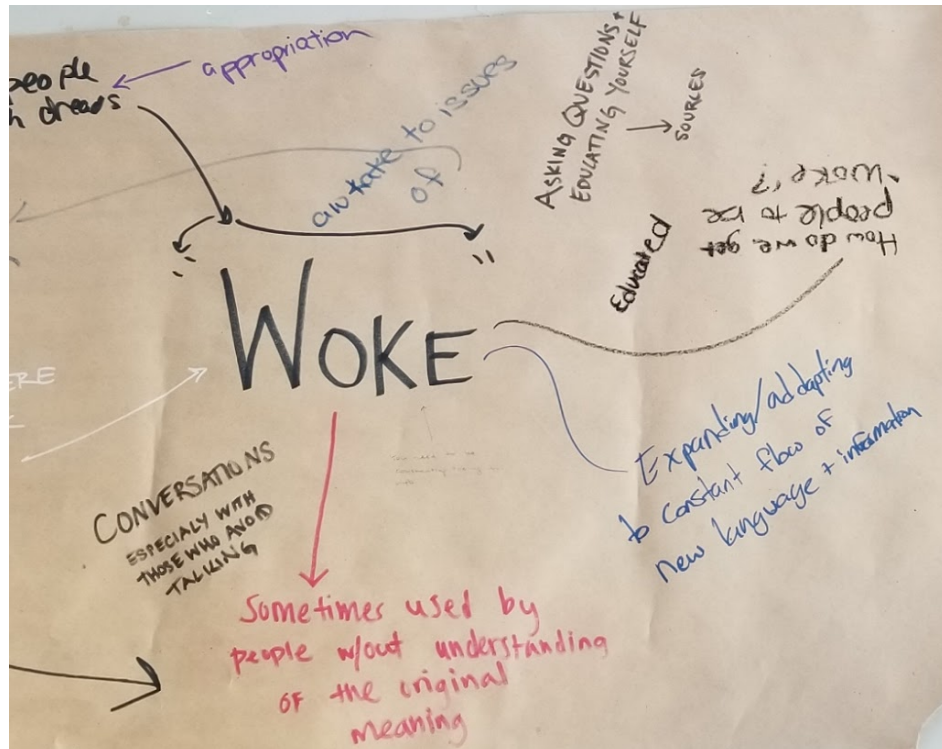 appropriation
people
dreads
awake to issues
of
ASKING QUESTIONS +
EDUCATING YOURSELF
SOURCES
How do we get
people to be
"Woke"?
Educated
" "
WOKE
ERE
Expanding/addapting
to constant flow of
new language + information
CONVERSATIONS
ESPECIALY WITH
THOSE WHO AVOID
TALKING
Sometimes used by
people w/out understanding
of the original
meaning